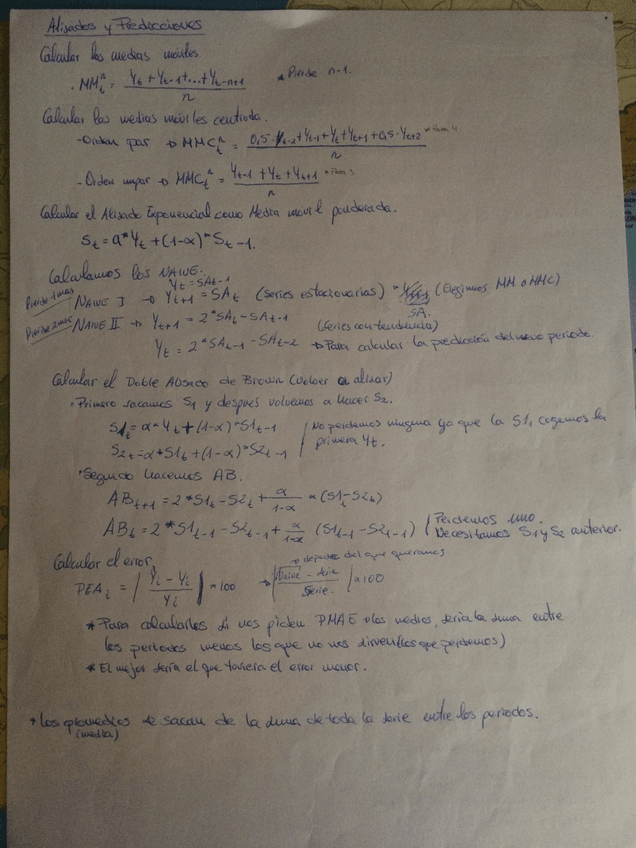 Alisados y Predicciones
Calcular las medias móviles.
· MM_t^n = (Y_t + Y_t-1 + ... + Y_t-n+1) / n * Pierde n-1.
Calcular las medias móviles centrada.
- Orden par → MMC_t^n = (0,5·Y_t-2 + Y_t-1 + Y_t + Y_t+1 + 0,5·Y_t+2) / n * Para 4
- Orden impar → MMC_t^n = (Y_t-1 + Y_t + Y_t+1) / n * Para 3
Calcular el Alisado Exponencial como Media móvil ponderada.
S_t = α*Y_t + (1-α)*S_t-1.
Calculamos los NAIVE.
Y_t = SA_t-1
Pierde 1 mas NAIVE I → Y_t+1 = SA_t (series estacionarias) * SA. (Elegimos MM o MMC)
Pierde 2 mas NAIVE II → Y_t+1 = 2*SA_t - SA_t-1 (series con tendencia)
Y_t = 2*SA_t-1 - SA_t-2 → Para calcular la predicción del nuevo periodo.
Calcular el Doble Alisado de Brown (Volver a alisar)
· Primero sacamos S1 y después volvemos a hacer S2.
S1_t = α*Y_t + (1-α)*S1_t-1 / No perdemos ninguna ya que la S1, cogemos la
S2_t = α*S1_t + (1-α)*S2_t-1 primera Y_t.
· Segundo hacemos AB.
AB_t+1 = 2*S1_t - S2_t + α/(1-α) * (S1_t - S2_t)
AB_t = 2*S1_t-1 - S2_t-1 + α/(1-α) (S1_t-1 - S2_t-1) / Perdemos uno.
Necesitamos S1 y S2 anterior.
Calcular el error → depende del que queramos
PEA_i = |(Y_i - Y_i) / Y_i| * 100 → |(Naive - serie) / Serie.| * 100
* Para calcularlos si nos piden PMAE o los medios, sería la suma entre
los periodos menos los que no nos sirven (los que perdemos)
* El mejor sería el que tuviera el error menor.
* Los promedios se sacan de la suma de toda la serie entre los periodos.
(media)